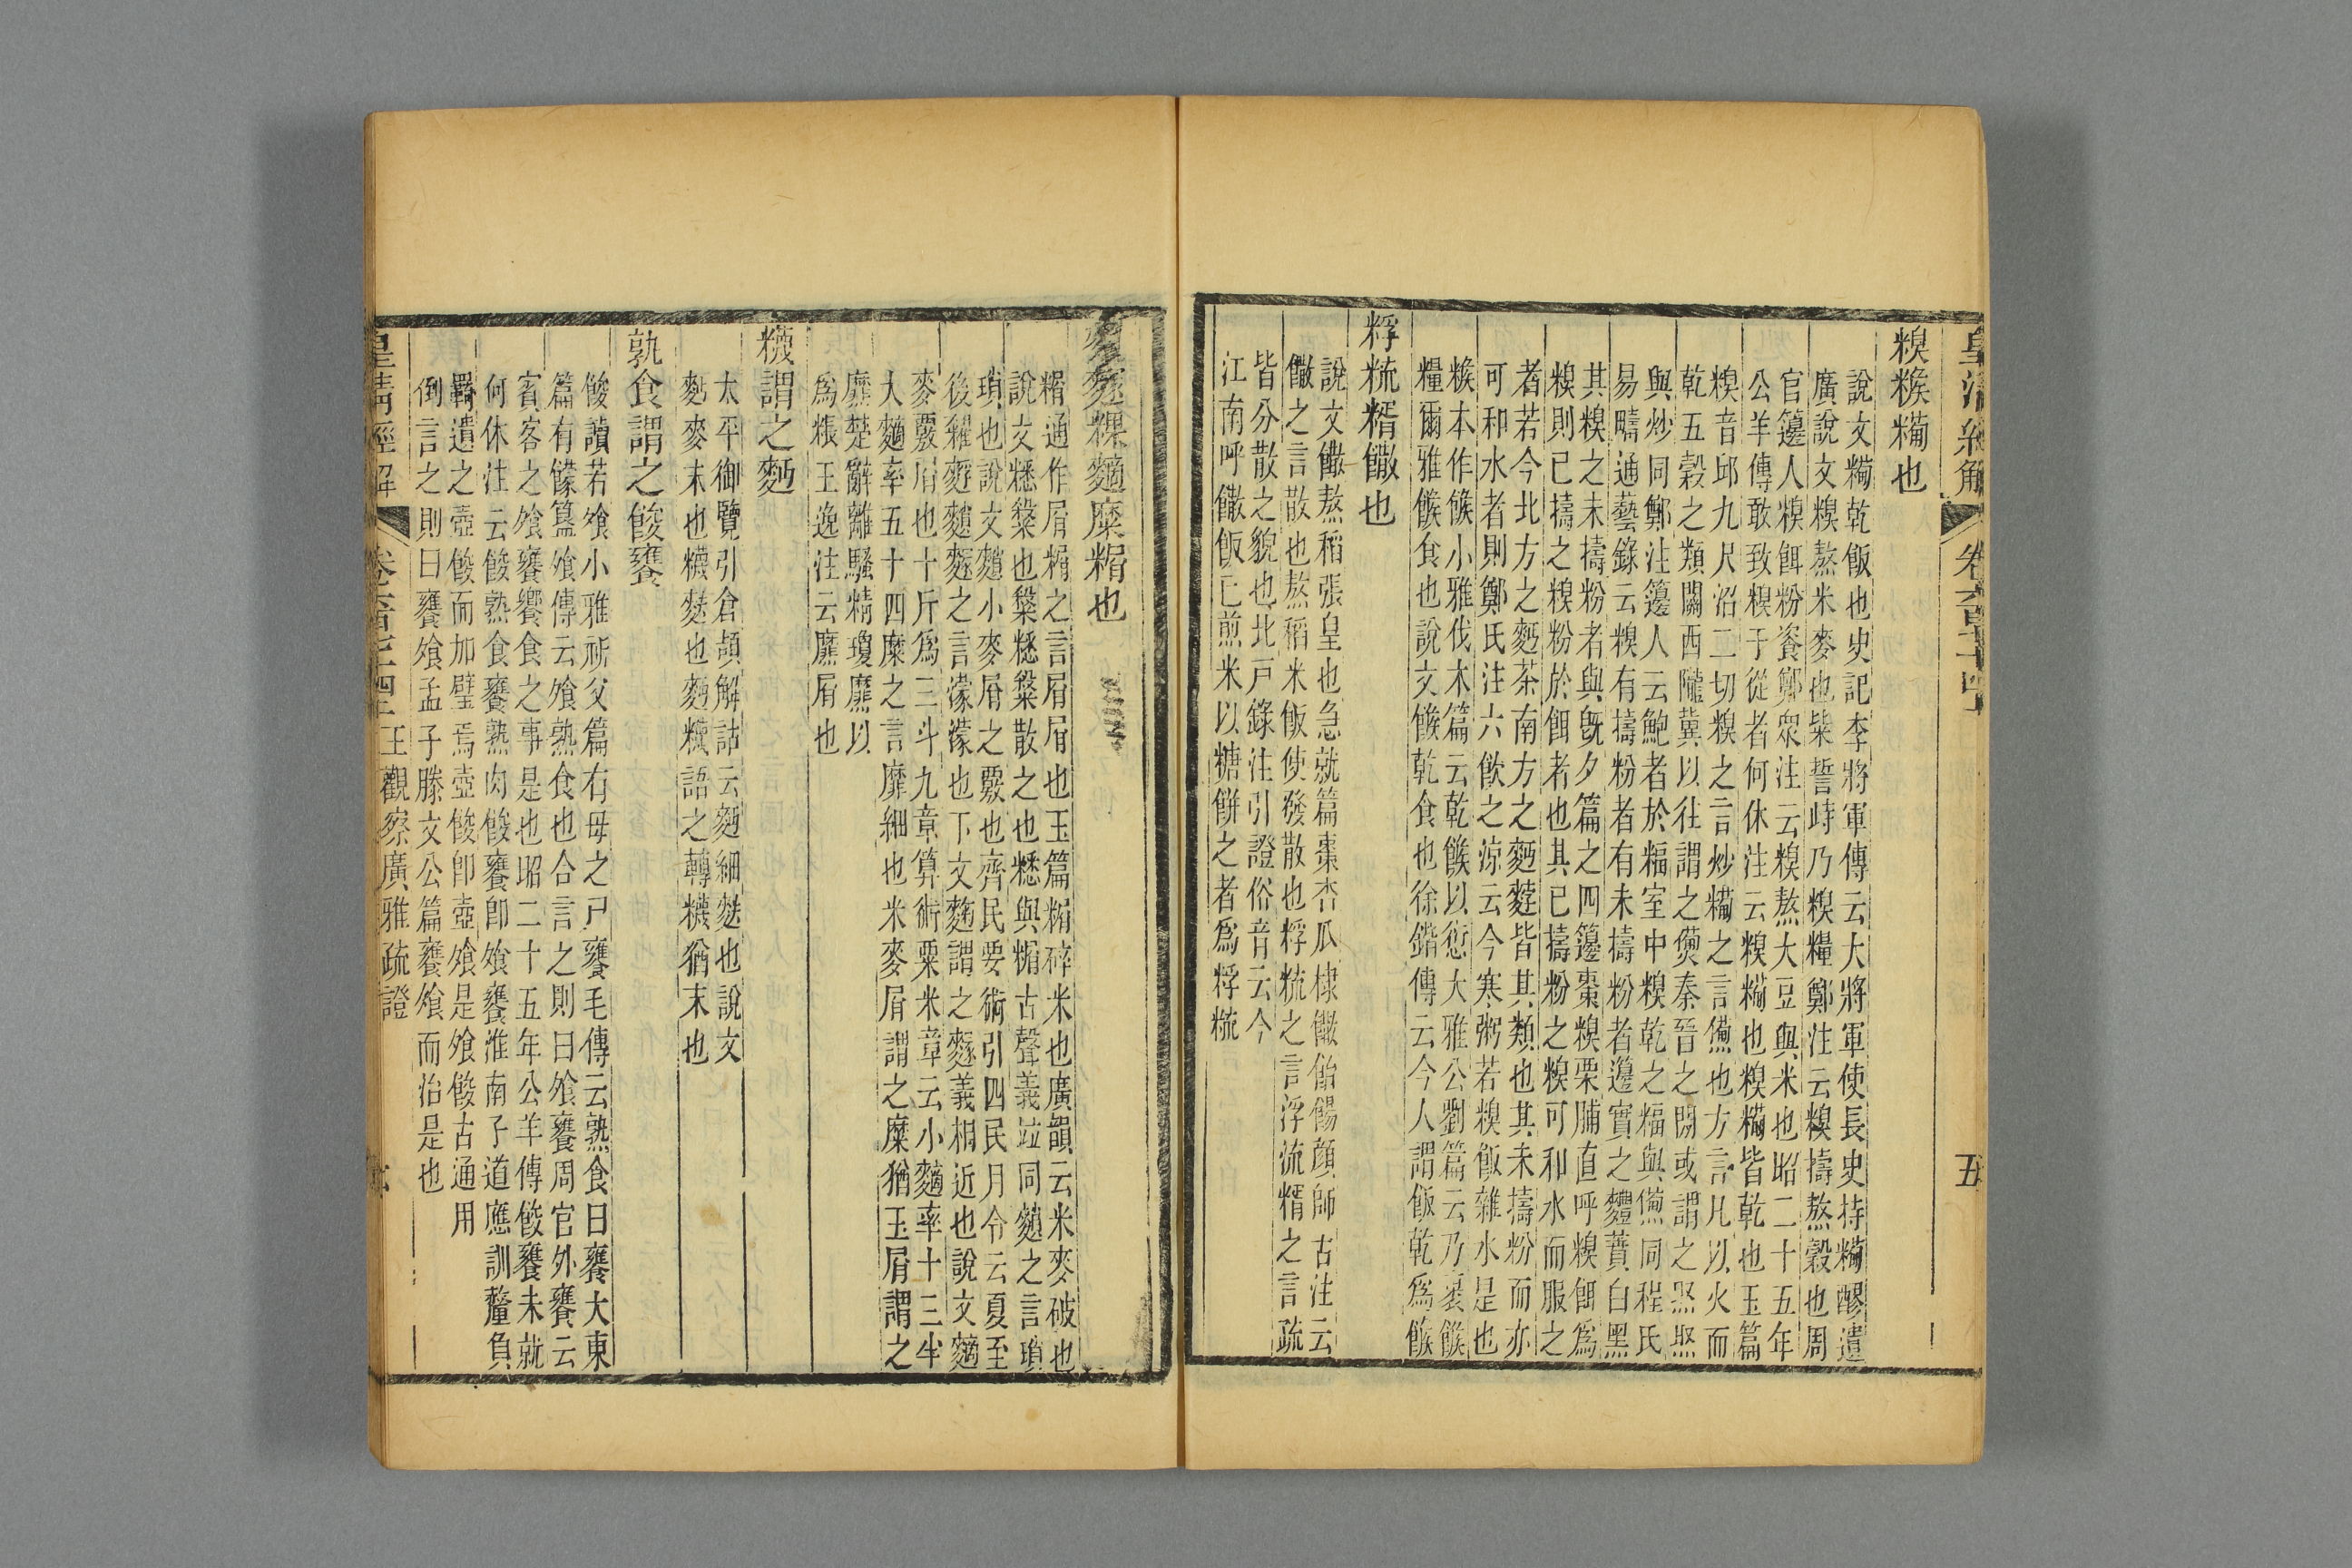 皇清經解 卷六百七十四 五
糗糇糒也
說文糒乾飯也史記李將軍傳云大將軍使長史持糒醪遺
廣說文糗熬米麥也粊誓峙乃糗糧鄭注云糗擣熬穀也周
官籩人糗餌粉餈鄭眾注云糗熬大豆與米也昭二十五年
公羊傳敢致糗于從者何休注云糗糒也糗糒皆乾也玉篇
糗音邱九尺沼二切糗之言炒糒之言㷶也方言凡以火而
乾五穀之類關西隴冀以往謂之㷶秦晉之閒或謂之焣焣
與炒同鄭注籩人云鮑者於糒室中糗乾之糒與㷶同程氏
易疇通藝錄云糗有擣粉者有未擣粉者籩實之麷蕡白黑
其糗之未擣粉者與旣夕篇之四籩棗糗栗脯直呼糗餌爲
糗則已擣之糗粉於餌者也其已擣粉之糗可和水而服之
者若今北方之麪茶南方之麪𪍿皆其類也其未擣粉而亦
可和水者則鄭氏注六飲之涼云今寒粥若糗飯雜水是也
糇本作餱小雅伐木篇云乾餱以愆大雅公劉篇云乃裹餱
糧爾雅餱食也說文餱乾食也徐鍇傳云今人謂飯乾爲餱
粰䊗糈饊也
說文饊熬稻張皇也急就篇棗杏瓜棣饊飴餳顏師古注云
饊之言散也熬稻米飯使發散也粰䊗之言浮流糈之言疏
皆分散之貌也北戶錄注引證俗音云今
江南呼饊飯已煎米以糖餅之者爲粰䊗
䴹糜糏也
糏通作屑糏之言屑屑也玉篇糏碎米也廣韻云米麥破也
說文糳也糳散之也與糏古聲義竝同䴹之言瑣
瑣也說文䴹小麥屑之覈也齊民要術引四民月令云夏至
後糴䴹䵆之言濛濛也下文䴬謂之䵆義相近也說文䴬
麥覈屑也十斤爲三斗九章算術粟米章云小䴬率十三半
大䴬率五十四糜之言靡細也米麥屑謂之糜猶玉屑謂之
𪎭楚辭離騷精瓊𪎭以
爲粻王逸注云𪎭屑也
䊳謂之麪
太平御覽引倉頡解詁云麪細麩也說文
麪麥末也䊳麩也麪䊳語之轉䊳猶末也
孰食謂之餕饔
餕讀若飧小雅祈父篇有母之尸饔毛傳云熟食曰饔大東
篇有饛簋飧傳云飧熟食也合言之則曰飧饔周官外饔云
賓客之飧饔饗食之事是也昭二十五年公羊傳餕饔未就
何休注云餕熟食饔熟肉餕饔卽飧饔淮南子道應訓釐負
羈遺之壺餕而加璧焉壺餕卽壺飧是飧餕古通用
倒言之則曰饔飧孟子滕文公篇饔飧而治是也
皇清經解 卷六百七十四 王觀察廣雅疏證